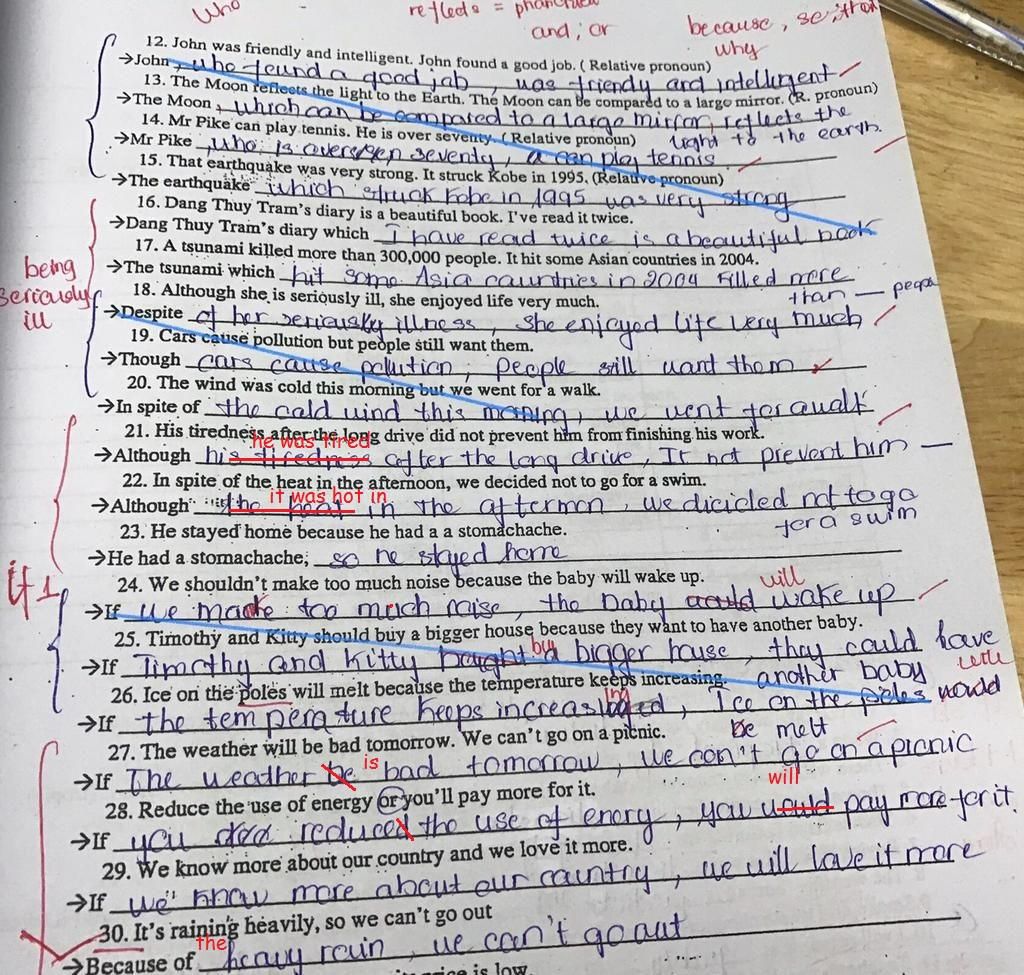 who
reflects =
and ; or
because,
why
12. John was friendly and intelligent. John found a good job. ( Relative pronoun)
→John, who found a good job , was friendy and intelligent
13. The Moon reflects the light to the Earth. The Moon can be compared to a largo mirror. (R. pronoun)
→The Moon , which can be compared to a large mirror, reflects the
light to the earth.
14. Mr Pike can play tennis. He is over seventy. ( Relative pronoun)
→Mr Pike who is over seventy, can play tennis
15. That earthquake was very strong. It struck Kobe in 1995. (Relative pronoun)
→The earthquake which struck Kobe in 1995 was very strong
16. Dang Thuy Tram's diary is a beautiful book. I've read it twice.
→Dang Thuy Tram's diary which I have read twice is a beautiful book
17. A tsunami killed more than 300,000 people. It hit some Asian countries in 2004.
→The tsunami which hit some Asia countries in 2004 killed more
than —
being
seriously
ill
18. Although she is seriously ill, she enjoyed life very much.
→Despite of her seriously illness, she enjoyed life very much
19. Cars cause pollution but people still want them.
→Though cars cause pollution, people still want them
20. The wind was cold this morning but we went for a walk.
→In spite of the cold wind this morning, we went for a walk
21. His tiredness after the long drive did not prevent him from finishing his work.
he was tired
→Although his tiredness after the long drive, It not prevent him —
22. In spite of the heat in the afternoon, we decided not to go for a swim.
it was hot in
→Although the heat in the afternoon, we dicided not to go
for a swim
23. He stayed home because he had a a stomachache.
→He had a stomachache, so he stayed home
if 1
24. We shouldn't make too much noise because the baby will wake up.
will
→If we made too much noise, the baby could wake up
25. Timothy and Kitty should buy a bigger house because they want to have another baby.
buy
→If Timothy and Kitty bought a bigger house, they could have
another baby
26. Ice on the poles will melt because the temperature keeps increasing.
will
ing
→If the temperature keeps increased, Ice on the poles would
be melt
27. The weather will be bad tomorrow. We can't go on a picnic.
is
→If The weather be bad tomorrow, we can't go on a picnic
will
28. Reduce the use of energy or you'll pay more for it.
→If you reduced the use of enery, you would pay more for it.
29. We know more about our country and we love it more.
→If we know more about our country, we will love it more
30. It's raining heavily, so we can't go out
the
→Because of heavy rain, we can't go out
is low.